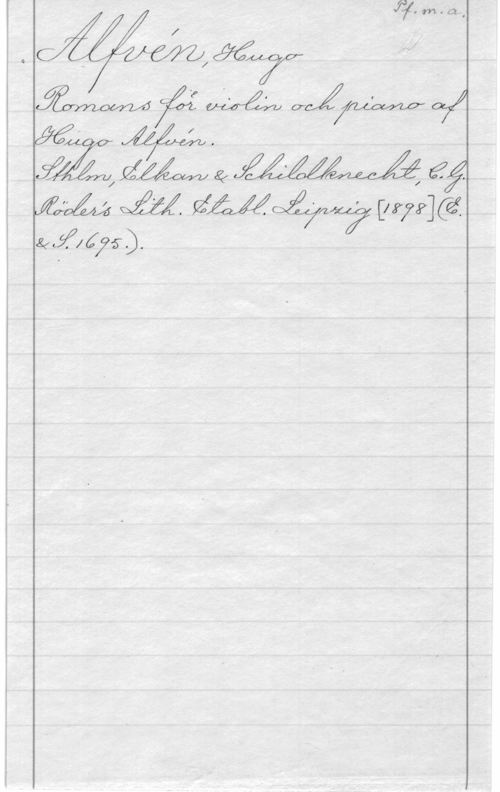 Pf. m. a.
Alfvén, Hugo
Romans för violin och piano af
Hugo Alfvén.
Sthlm, Elkan & Schildknecht, C. G.
Röder's Lith. Etabl. Leipzig [1898] (E.
& S. 1695.).